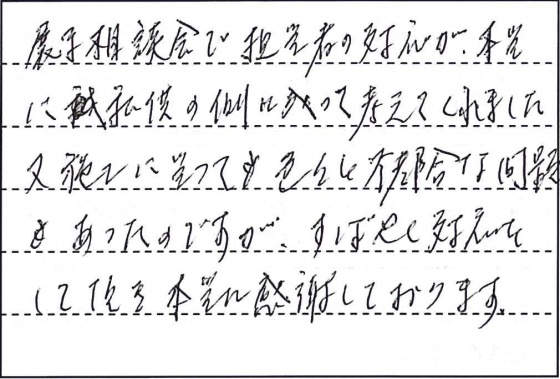 展示相談会で担当者の対応が、本当
に私共の側に立って考えてくれました
又施工に当っても色々と不都合な問題
もあったのですが、すばやく対応を
して頂き本当に感謝しております。